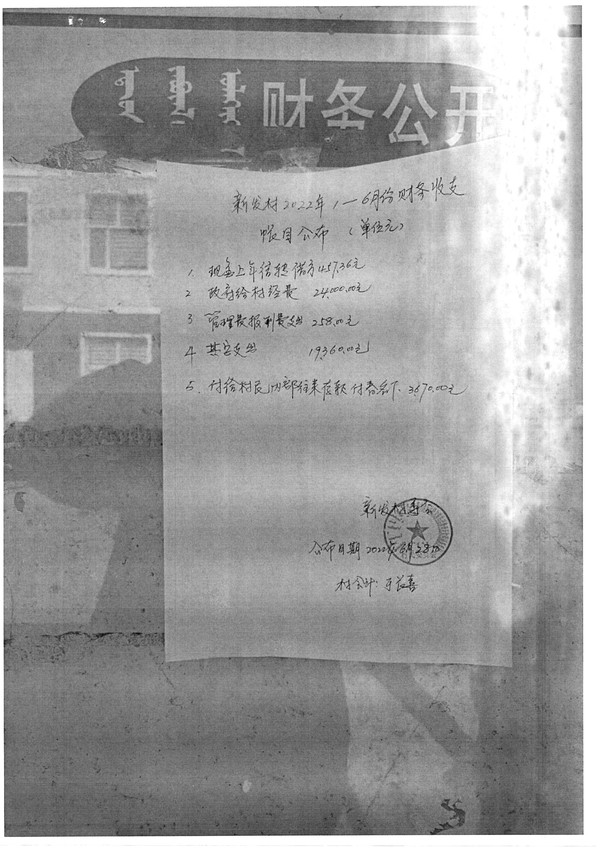 财务公开
新发村2022年1—6月份财务收支
帐目公布 (单位元)
1. 现金上年结转借方457.36元
2 政府给村经费 24,000.00元
3 管理费报刊费支出258.00元
4 其它支出 19360.00元
5. 付给村民内部往来 3670.00元
新发村
公布日期 2022年 月28日
村会计: